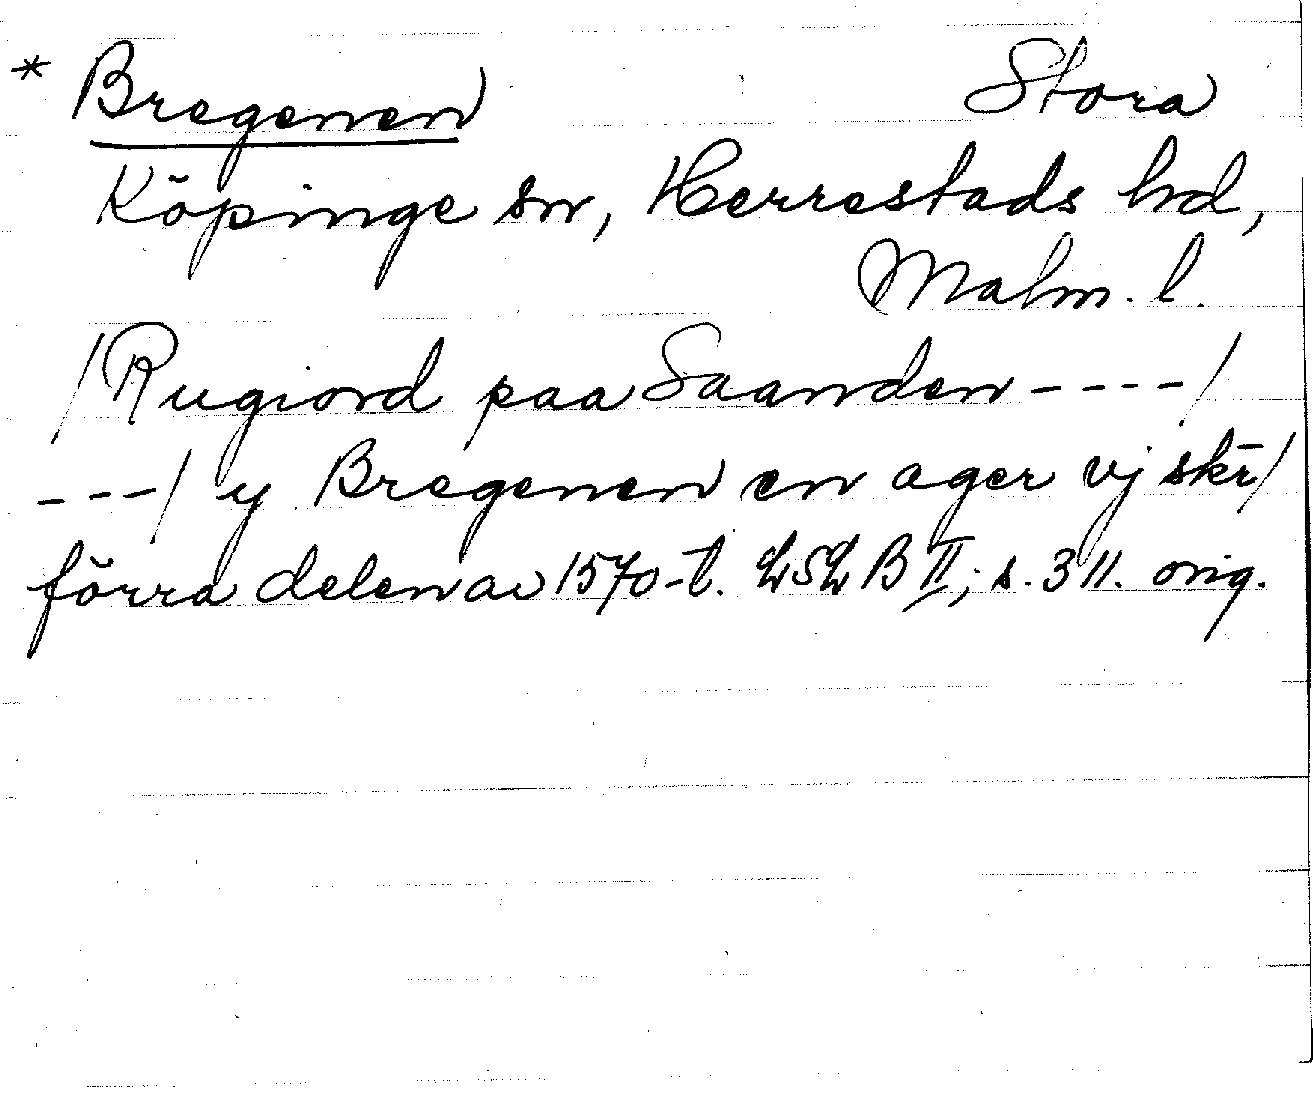 * Bregenen Stora
Köpinge sn, Herrestads hd,
Malm. l.
/Rugiord paa Saanden ----/
---/ y Bregenen en ager vj skr̄/
förra delen av 1570-t. LSL B II; s. 311. orig.